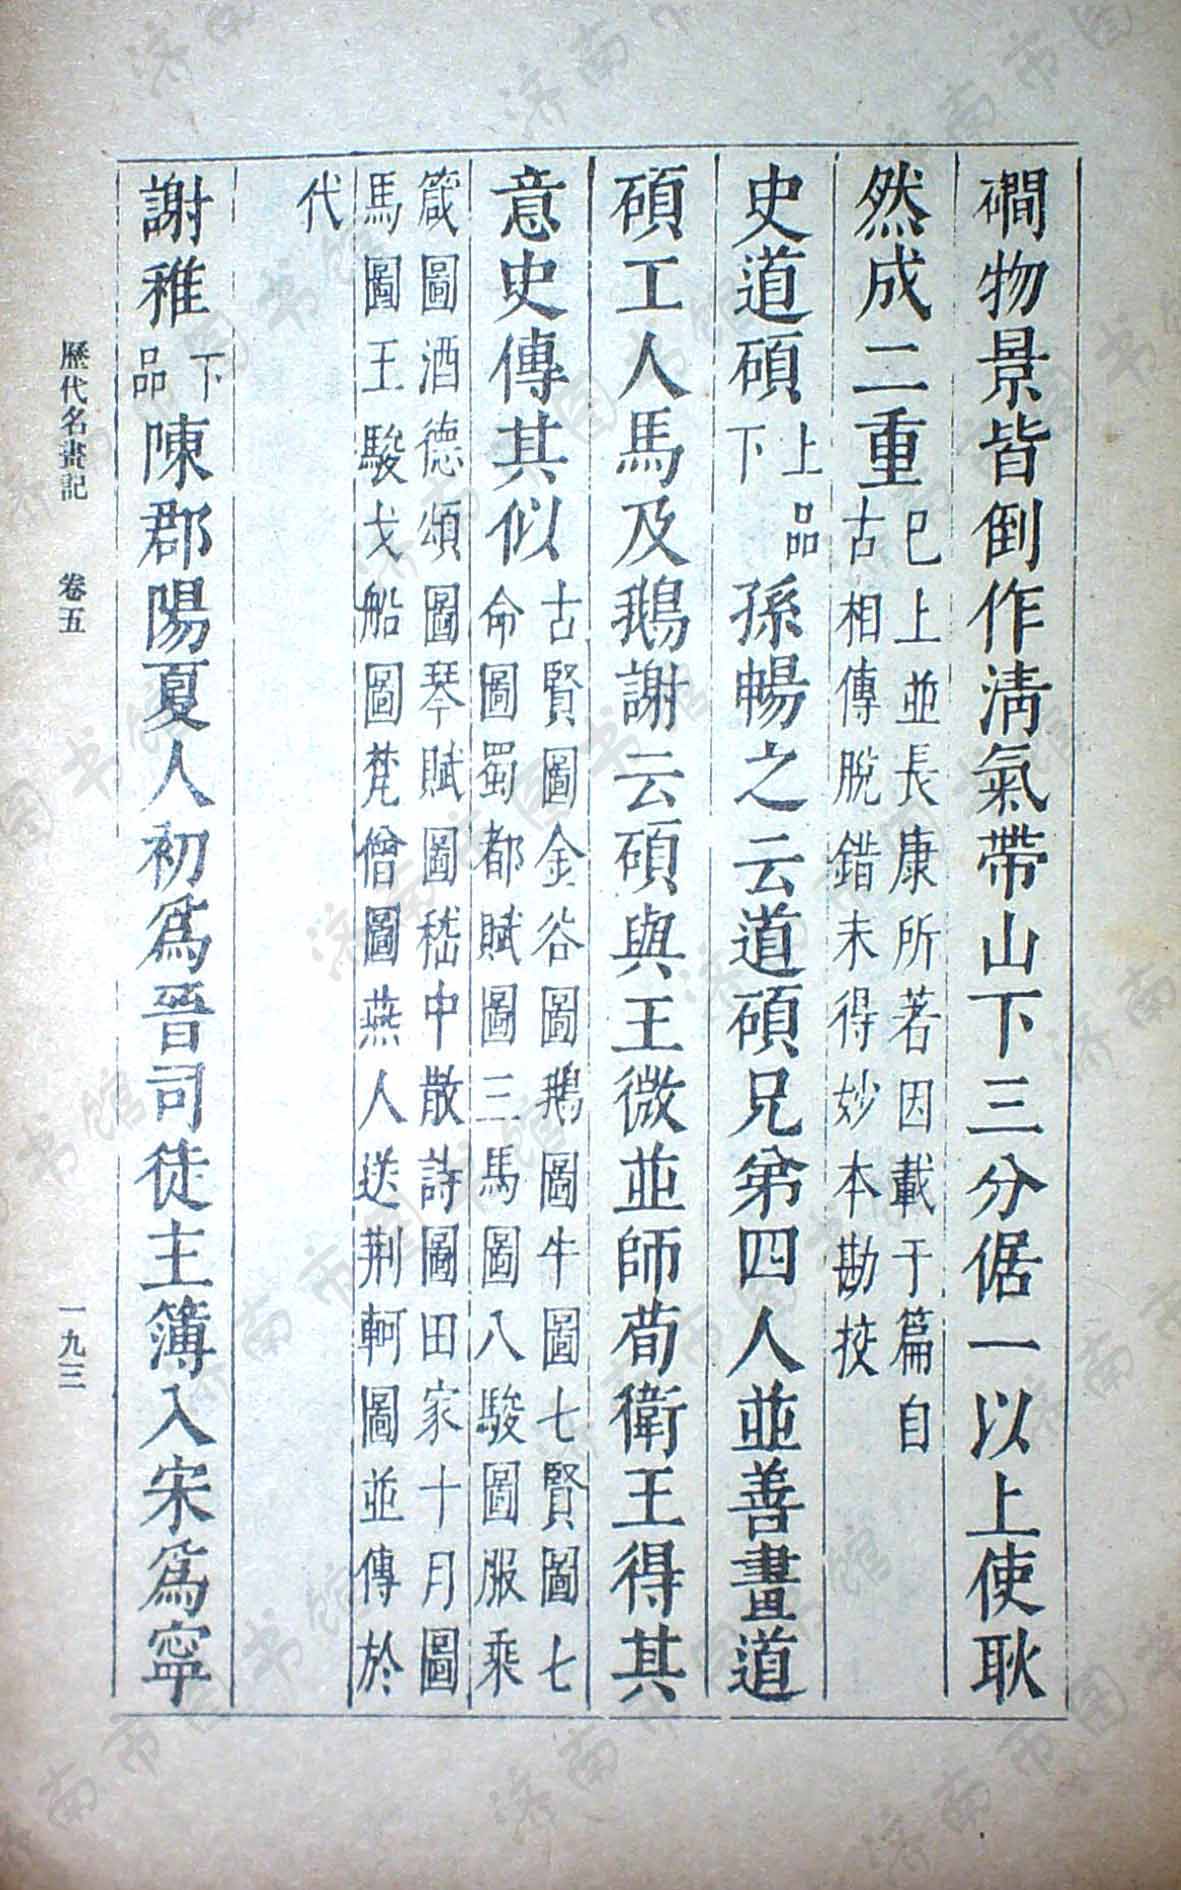 磵物景皆倒作清氣帶山下三分倨一以上使耿
然成二重巳上並長康所著因載于篇自
古相傳脫錯未得妙本勘挍
史道碩上品
下孫暢之云道碩兄弟四人並善畫道
碩工人馬及鵝謝云碩與王微並師荀衛王得其
意史傳其似古賢圖金谷圖鵝圖牛圖七賢圖七
命圖蜀都賦圖三馬圖八駿圖服乘
箴圖酒德頌圖琴賦圖嵇中散詩圖田家十月圖
馬圖王駿戈船圖梵僧圖燕人送荆軻圖並傳於
代
謝稚下
品陳郡陽夏人初爲晉司徒主簿入宋爲寧
歷代名畫記 卷五 一九三
济南市图书馆